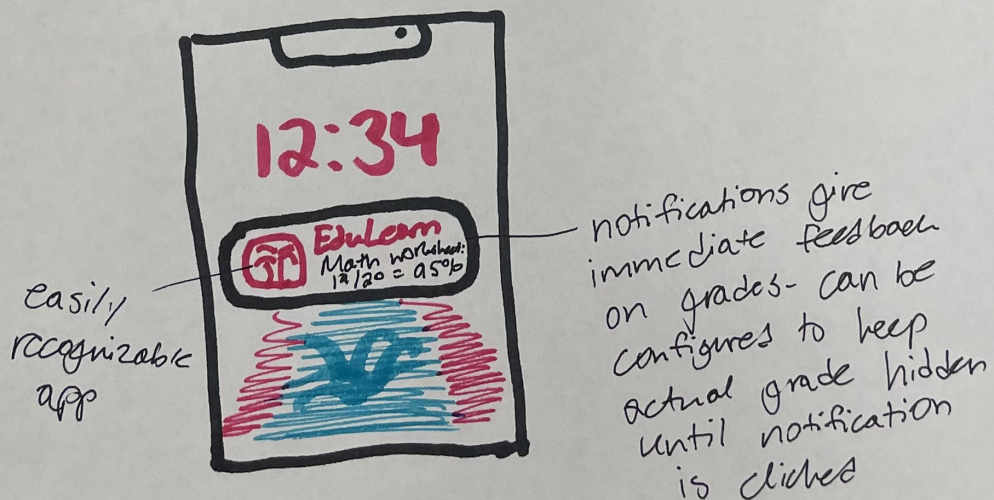 12:34
EduLearn
Math worksheet:
/20 = 95%
easily
recognizable
app
notifications give
immediate feedback
on grades- can be
configures to keep
actual grade hidden
until notification
is clicked